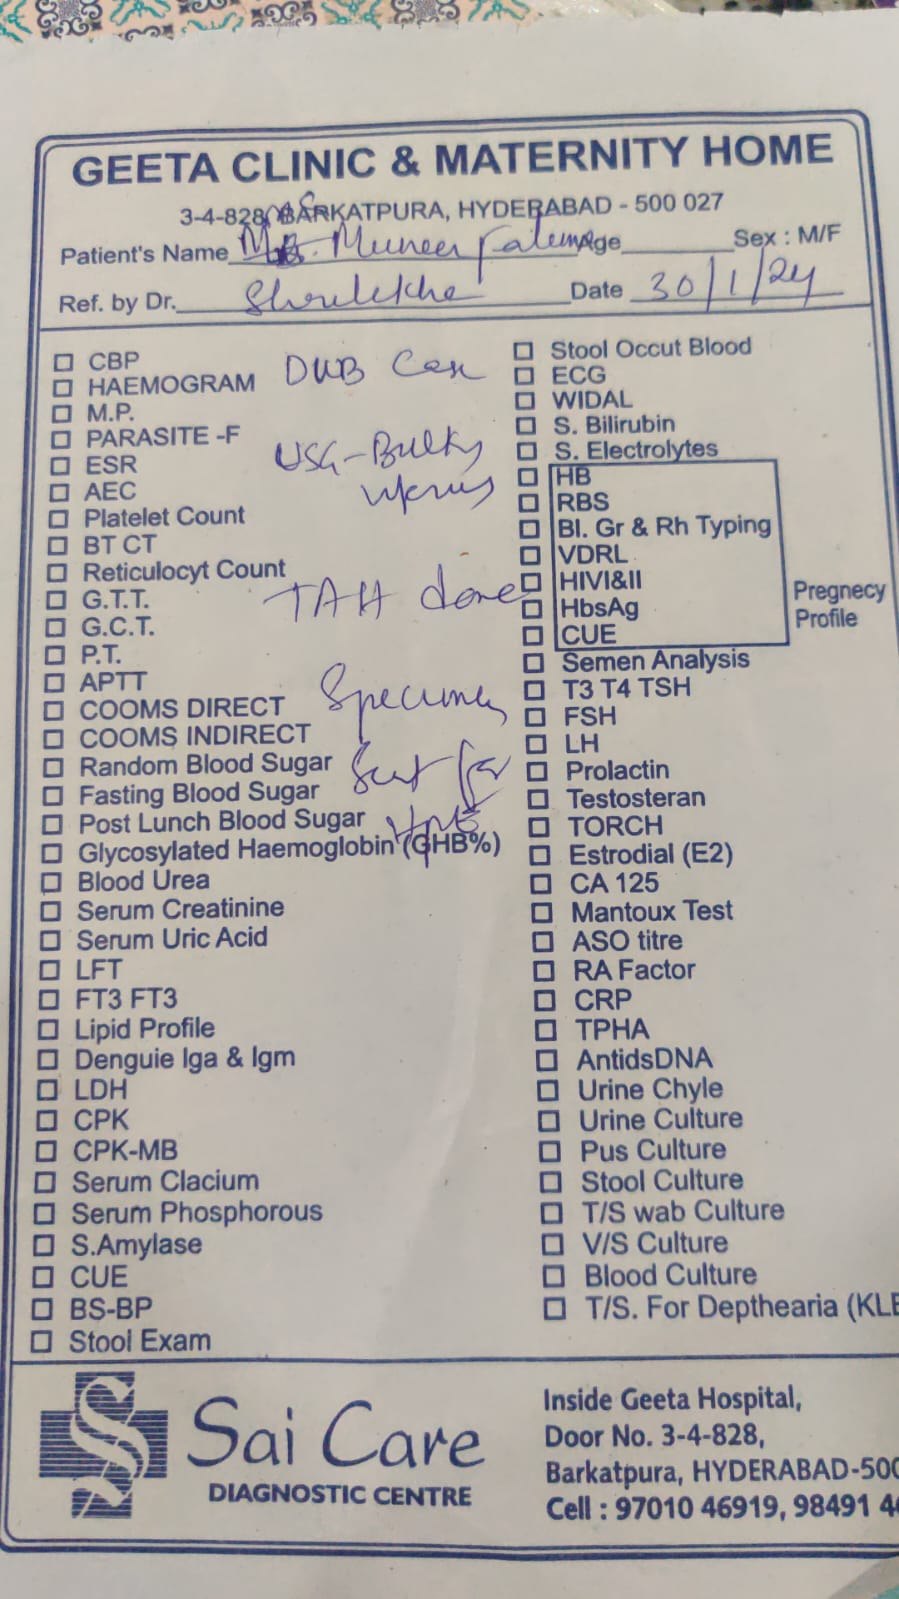 GEETA CLINIC & MATERNITY HOME
3-4-828, BARKATPURA, HYDERABAD - 500 027
Patient's Name Mrs. Muneer Fatema Age Sex : M/F
Ref. by Dr. Shrulekha Date 30/1/24
CBP
HAEMOGRAM
M.P.
PARASITE -F
ESR
AEC
Platelet Count
BT CT
Reticulocyt Count
G.T.T.
G.C.T.
P.T.
APTT
COOMS DIRECT
COOMS INDIRECT
Random Blood Sugar
Fasting Blood Sugar
Post Lunch Blood Sugar
Glycosylated Haemoglobin (GHB%)
Blood Urea
Serum Creatinine
Serum Uric Acid
LFT
FT3 FT3
Lipid Profile
Denguie Iga & Igm
LDH
CPK
CPK-MB
Serum Clacium
Serum Phosphorous
S.Amylase
CUE
BS-BP
Stool Exam
DUB Case
USG-Bulky
uterus
TAH done
Specimen
Sent for
HPE
Stool Occut Blood
ECG
WIDAL
S. Bilirubin
S. Electrolytes
HB
RBS
Bl. Gr & Rh Typing
VDRL
HIVI&II
HbsAg
CUE
Pregnecy
Profile
Semen Analysis
T3 T4 TSH
FSH
LH
Prolactin
Testosteran
TORCH
Estrodial (E2)
CA 125
Mantoux Test
ASO titre
RA Factor
CRP
TPHA
AntidsDNA
Urine Chyle
Urine Culture
Pus Culture
Stool Culture
T/S wab Culture
V/S Culture
Blood Culture
T/S. For Depthearia (KLB
Sai Care
DIAGNOSTIC CENTRE
Inside Geeta Hospital,
Door No. 3-4-828,
Barkatpura, HYDERABAD-500
Cell : 97010 46919, 98491 4